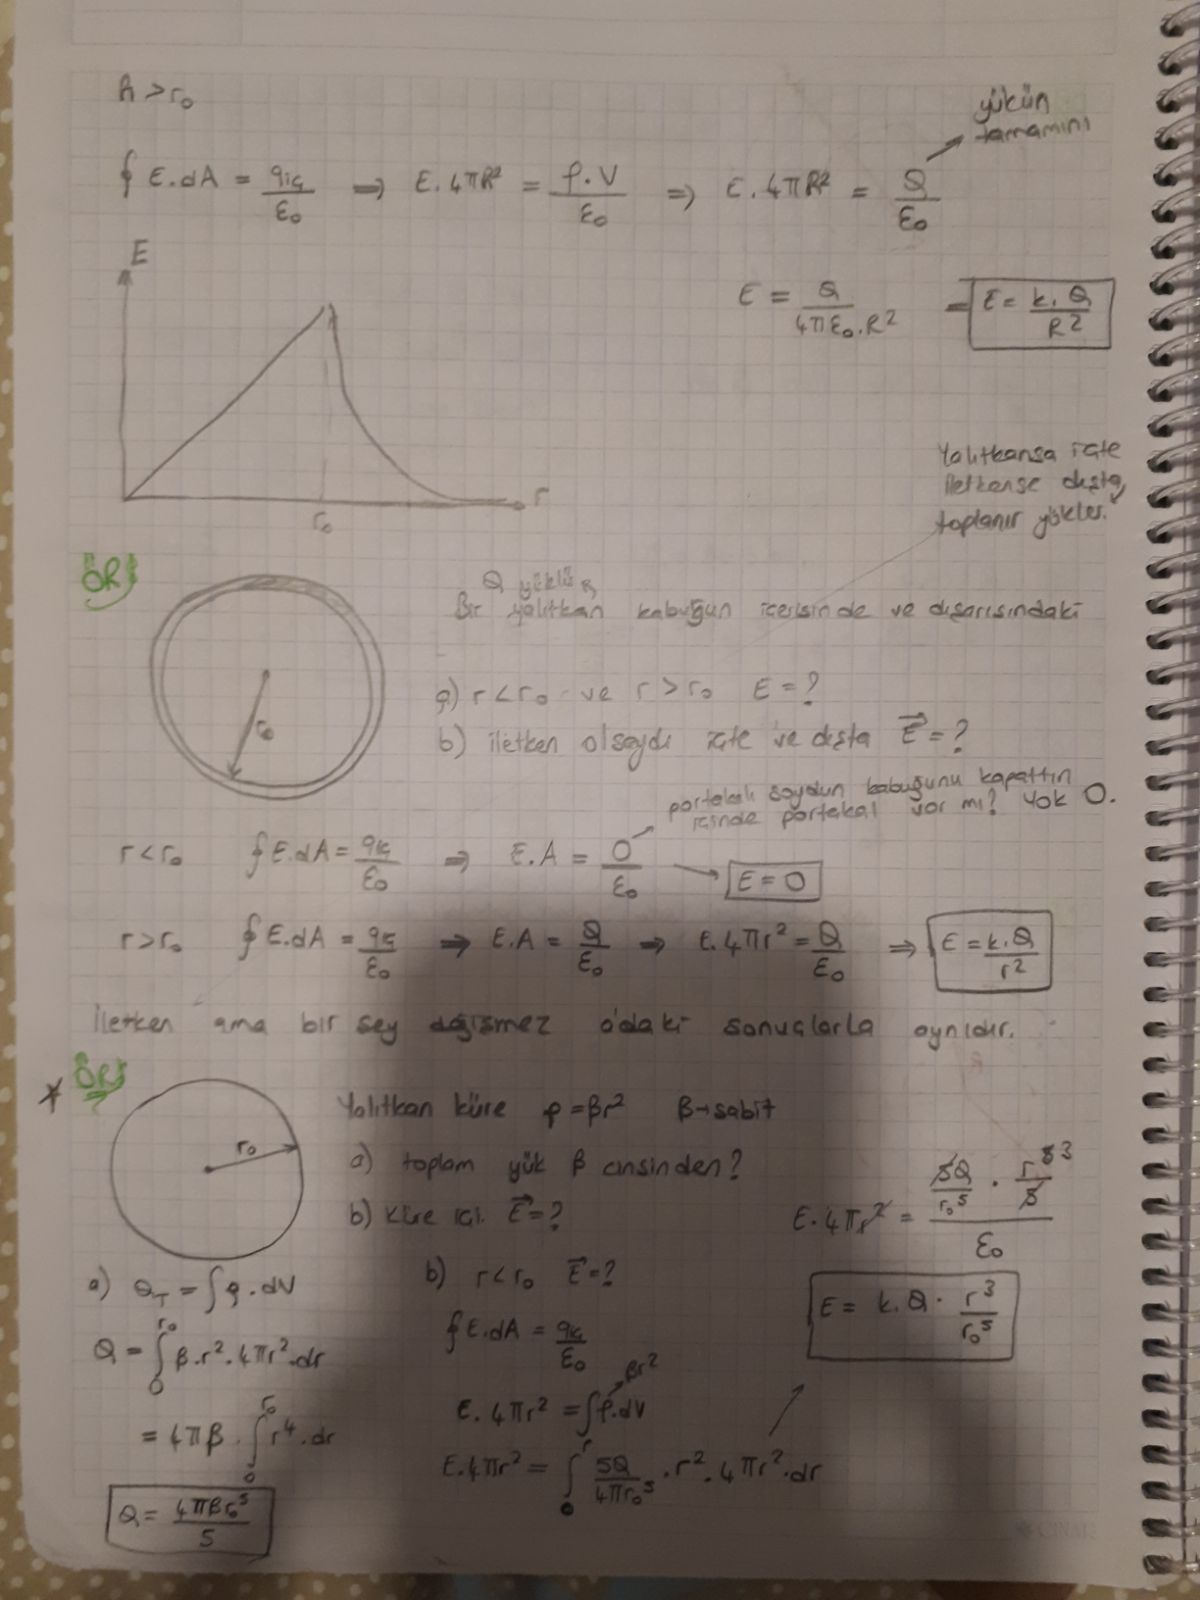 R > r₀
yükün
tamamını
∮ E.dA = qiç/ε₀ ⇒ E.4πR² = ρ.V/ε₀ ⇒ E.4πR² = Q/ε₀
E = Q/4πε₀.R² = E = k.Q/R²
E
r₀
r
Yalıtkansa içte
iletkense dışta
toplanır yükler.
ÖR:
Q yüklü
Bir yalıtkan kabuğun içerisinde ve dışarısındaki
r₀
a) r < r₀ ve r > r₀ E = ?
b) iletken olsaydı içte ve dışta E⃗ = ?
portakalı soydun kabuğunu kapattın
içinde portakal var mı? Yok 0.
r < r₀ ∮E.dA = qiç/ε₀ ⇒ E.A = 0/ε₀ → E = 0
r > r₀ ∮E.dA = qiç/ε₀ ⇒ E.A = Q/ε₀ ⇒ E.4πr² = Q/ε₀ ⇒ E = k.Q/r²
İletken ama bir şey değişmez a'daki sonuçlarla aynıdır.
ÖR:
r₀
Yalıtkan küre ρ = βr² β→sabit
a) toplam yük β cinsinden?
b) Küre içi E⃗ = ?
a) Q_T = ∫ρ.dV
Q = ∫₀^r₀ β.r².4πr².dr
= 4πβ.∫₀^r₀ r⁴.dr
Q = 4πβr₀⁵/5
b) r < r₀ E⃗ = ?
∮E.dA = qiç/ε₀
βr²
E.4πr² = ∫ρ.dV
E.4πr² = ∫₀^r 5Q/4πr₀⁵ .r².4πr².dr
E.4πr² = (5Q/r₀⁵ . r⁵/5)/ε₀
3
E = k.Q. r³/r₀⁵